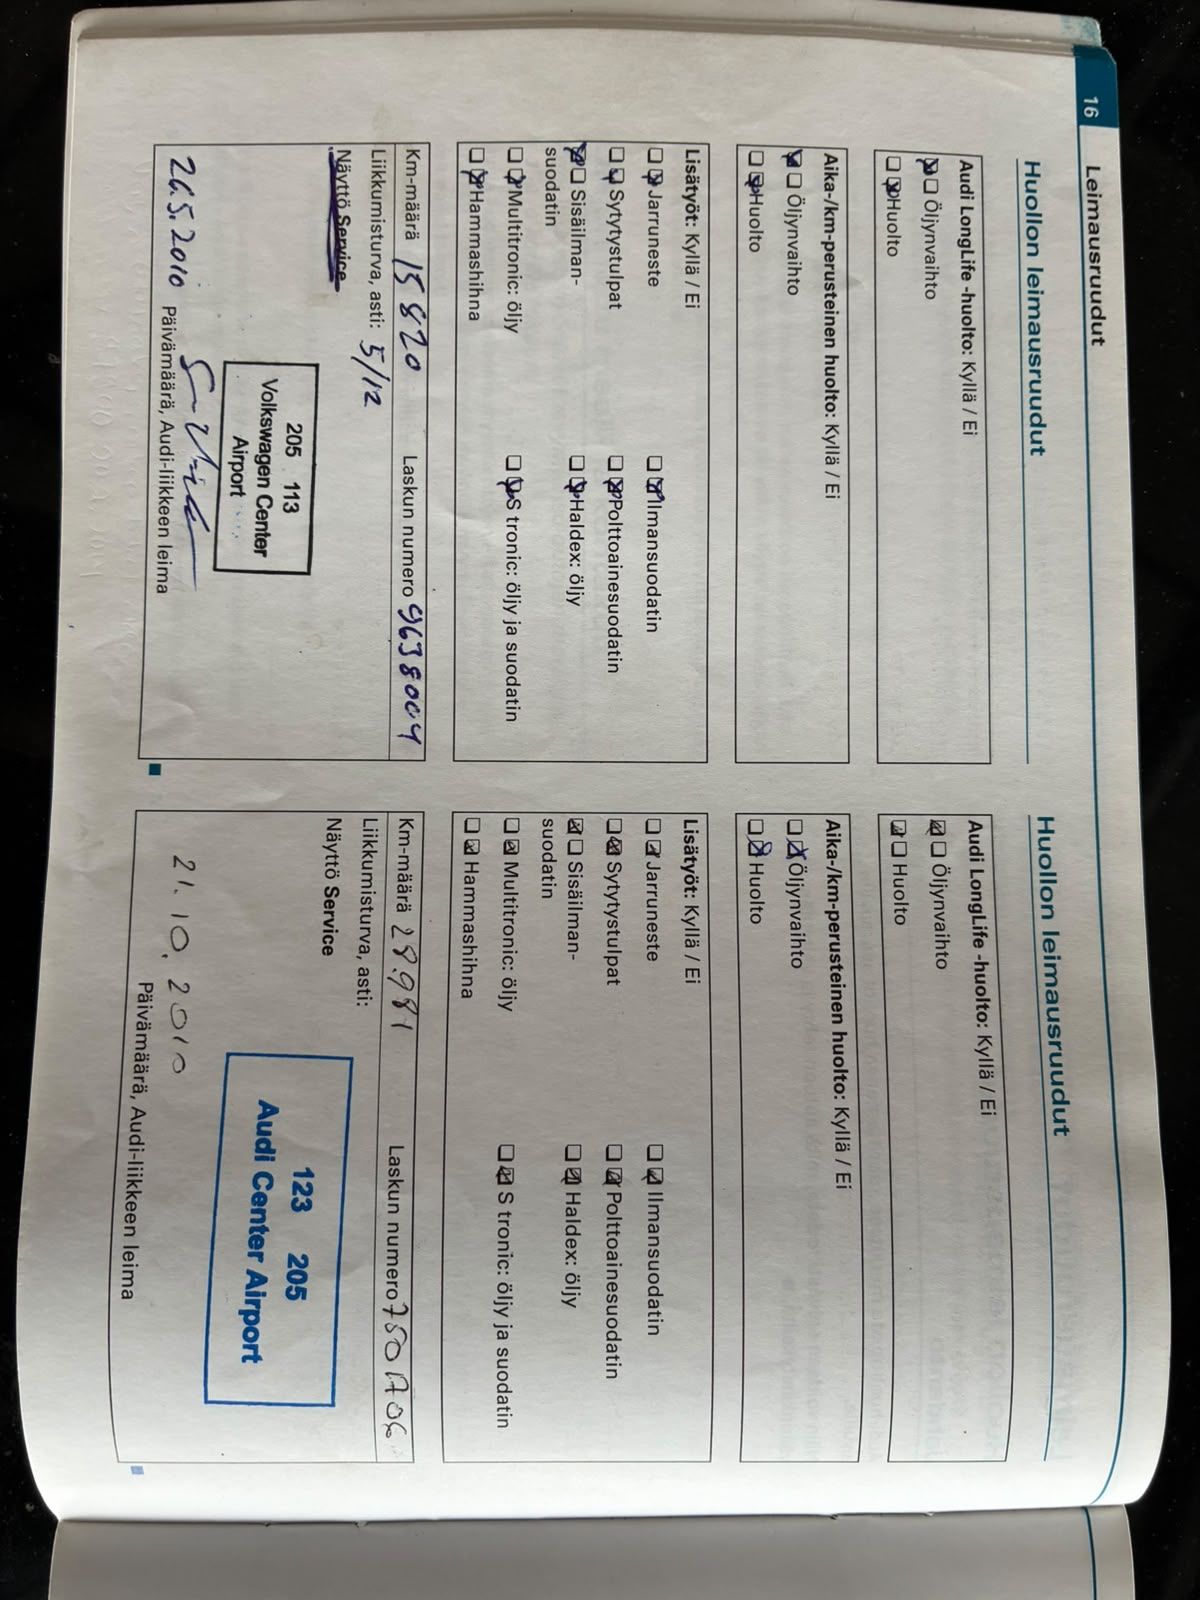 16 Leimausruudut
Huollon leimausruudut
Audi LongLife -huolto: Kyllä / Ei
☒ ☐ Öljynvaihto
☐ ☒ Huolto
Aika-/km-perusteinen huolto: Kyllä / Ei
☒ ☐ Öljynvaihto
☐ ☒ Huolto
Lisätyöt: Kyllä / Ei
☐ ☒ Jarruneste ☐ ☒ Ilmansuodatin
☐ ☒ Sytytystulpat ☐ ☒ Polttoainesuodatin
☒ ☐ Sisäilman- ☐ ☒ Haldex: öljy
suodatin
☐ ☒ Multitronic: öljy ☐ ☒ S tronic: öljy ja suodatin
☐ ☒ Hammashihna
Km-määrä 15820 Laskun numero 9638004
Liikkumisturva, asti: 5/12
Näyttö Service
205 113
Volkswagen Center
Airport
26.5.2010 Päivämäärä, Audi-liikkeen leima
Huollon leimausruudut
Audi LongLife -huolto: Kyllä / Ei
☒ ☐ Öljynvaihto
☒ ☐ Huolto
Aika-/km-perusteinen huolto: Kyllä / Ei
☐ ☒ Öljynvaihto
☐ ☒ Huolto
Lisätyöt: Kyllä / Ei
☐ ☒ Jarruneste ☐ ☒ Ilmansuodatin
☐ ☒ Sytytystulpat ☐ ☒ Polttoainesuodatin
☒ ☐ Sisäilman- ☐ ☒ Haldex: öljy
suodatin
☐ ☒ Multitronic: öljy ☐ ☒ S tronic: öljy ja suodatin
☐ ☒ Hammashihna
Km-määrä 28.981 Laskun numero 7501706
Liikkumisturva, asti:
Näyttö Service
123 205
Audi Center Airport
21.10.2010
Päivämäärä, Audi-liikkeen leima